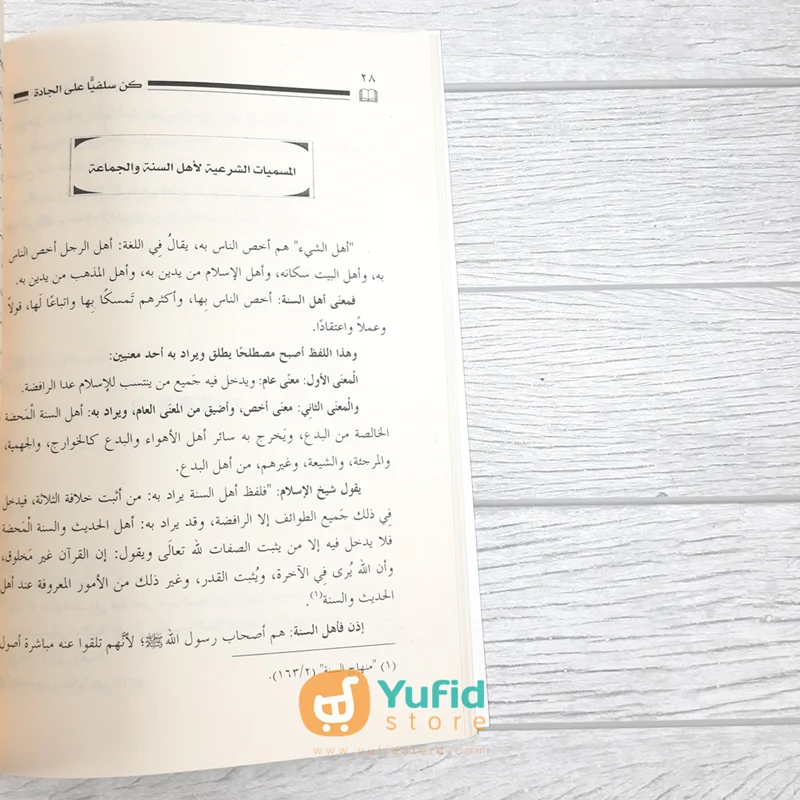 ٢٨
كن سلفيًّا على الجادة
المسميات الشرعية لأهل السنة والجماعة
"أهل الشيء" هم أخص الناس به، يقالُ فِي اللغة: أهل الرجل أخص الناس
به، وأهل البيت سكانه، وأهل الإسلام من يدين به، وأهل المذهب من يدين به.
فمعنَى أهل السنة: أخص الناس بِها، وأكثرهم تَمسكًا بِها واتباعًا لَها، قولاً
وعملاً واعتقادًا.
وهذا اللفظ أصبح مصطلحًا يطلق ويراد به أحد معنيين:
الْمعنَى الأول: معنًى عام: ويدخل فيه جَميع من ينتسب للإسلام عدا الرافضة.
والْمعنَى الثانِي: معنًى أخص، وأضيق من المعنَى العام، ويراد به: أهل السنة الْمَحضة
الخالصة من البدع، ويَخرج به سائر أهل الأهواء والبدع كالخوارج، والجهمية،
والمرجئة، والشيعة، وغيرهم، من أهل البدع.
يقول شيخ الإسلام: "فلفظ أهل السنة يراد به: من أثبت خلافة الثلاثة، فيدخل
فِي ذلك جَميع الطوائف إلا الرافضة، وقد يراد به: أهل الحديث والسنة الْمَحضة
فلا يدخل فيه إلا من يثبت الصفات لله تعالَى ويقول: إن القرآن غير مَخلوق،
وأن الله يُرى فِي الآخرة، ويُثبت القدر، وغير ذلك من الأمور المعروفة عند أهل
الحديث والسنة(١).
إذن فأهل السنة: هم أصحاب رسول الله ﷺ؛ لأنَّهم تلقوا عنه مباشرة أصول
(١) "منهاج السنة" (١٦٣/٢).
Yufid
store
www.yufidstore.com